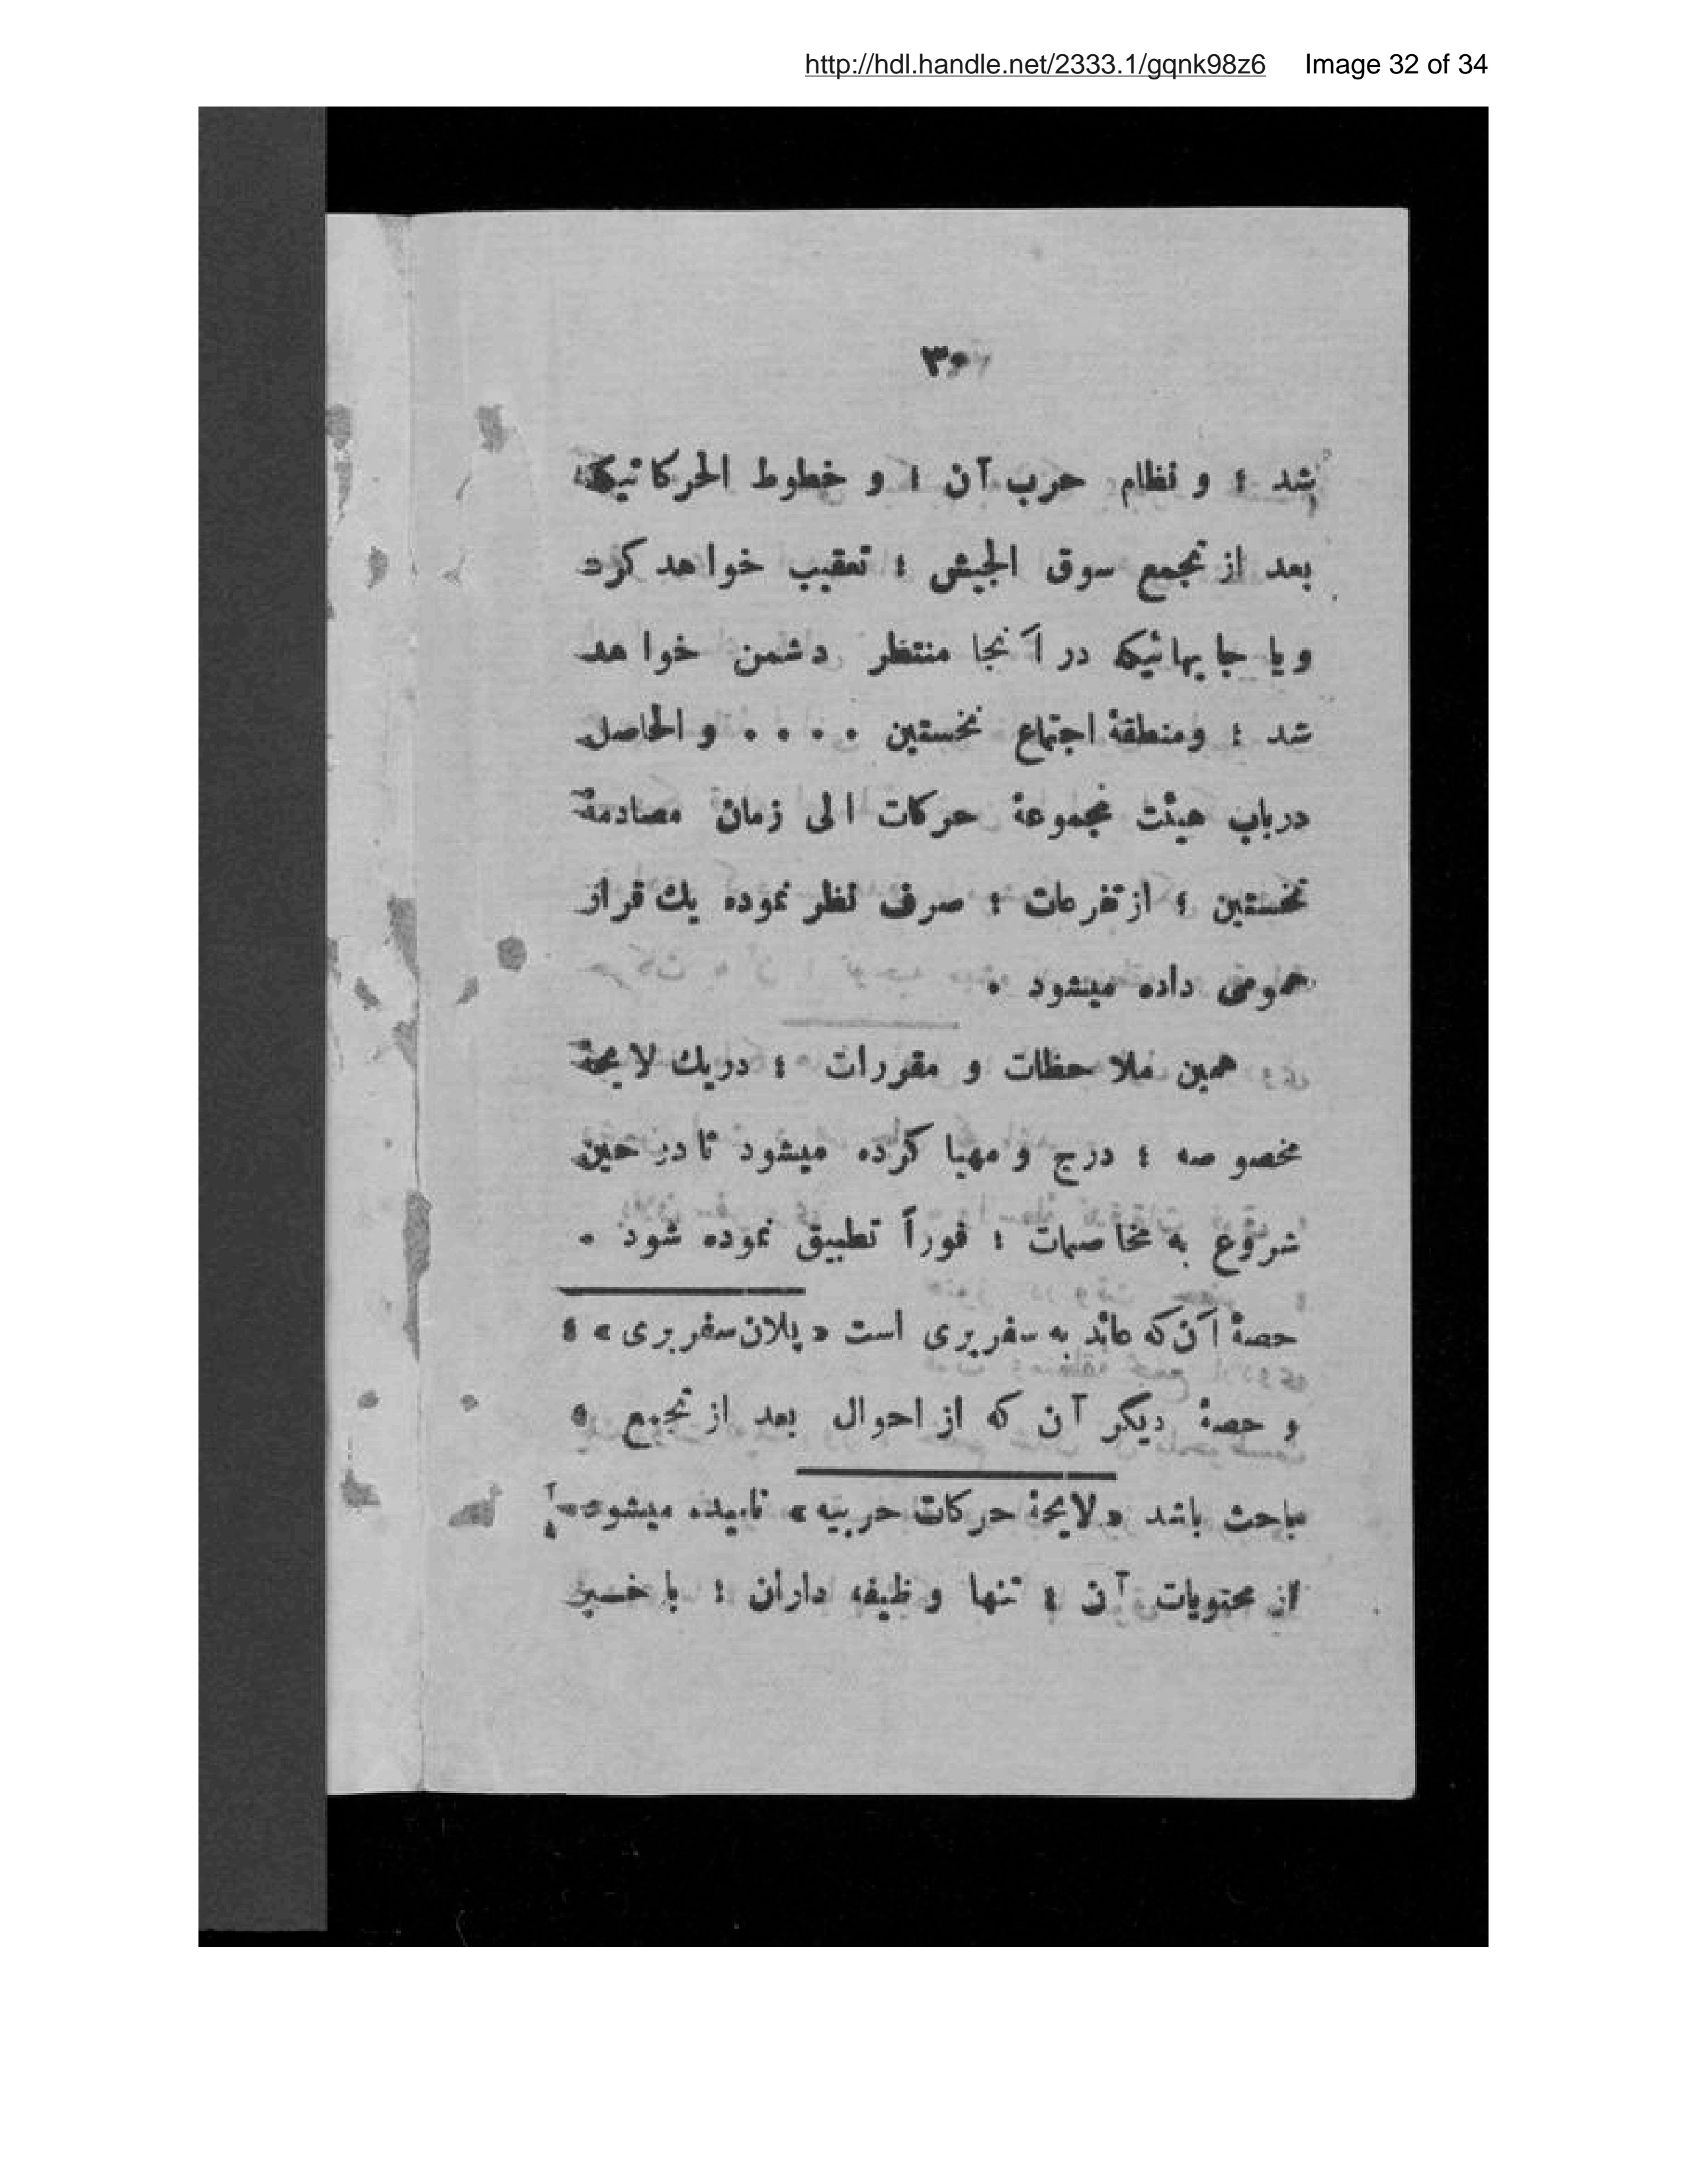 http://hdl.handle.net/2333.1/gqnk98z6 Image 32 of 34
۳۰
شد ؛ و نظام حرب آن ؛ و خطوط الحركاتیكه
بعد از تجمع سوق الجیش ؛ تعقیب خواهد كرد
ویا جایهائیكه در آنجا منتظر دشمن خواهد
شد ؛ ومنطقۀ اجتماع نخستین ۰ ۰ ۰ ۰ والحاصل
درباب هیئت مجموعۀ حركات الی زمان مصادمۀ
نخستین ؛ از تفرعات ؛ صرف نظر نموده یك قرار
عمومی داده میشود ۰
همین ملاحظات و مقررات ؛ دریك لایحۀ
مخصوصه ؛ درج و مهیا كرده میشود تا در حین
شروع به مخاصمات ؛ فوراً تطبیق نموده شود ۰
حصۀ آن كه عائد به سفربری است «پلان سفربری» ؛
و حصۀ دیگر آن كه از احوال بعد از تجمع ؛
مباحث باشد «لایحۀ حركات حربیه» نامیده میشود
از محتویات آن ؛ تنها وظیفه داران ؛ با خبر